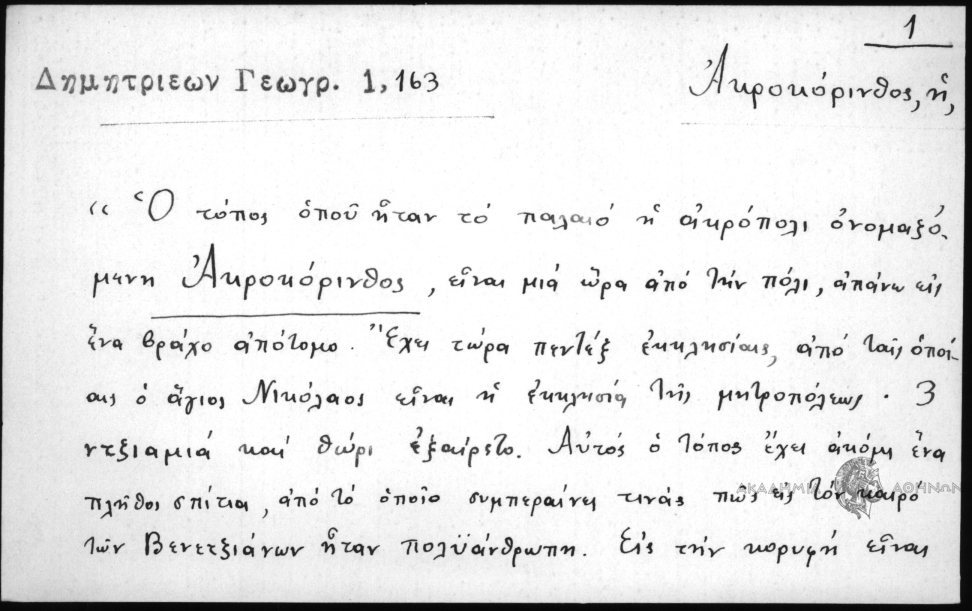 1
Δημητριεων Γεωγρ. 1, 163
Ἀκροκόρινθος, ἡ,
« Ὁ τόπος ὁποῦ ἦταν τό παλαιό ἡ ἀκρόπολι ὀνομαζό-
μενη Ἀκροκόρινθος, εἶναι μιά ὥρα ἀπό τήν πόλι, ἀπάνω εἰς
ἕνα βράχο ἀπότομο. Ἔχει τώρα πεντέξ ἐκκλησίαις, ἀπό ταῖς ὁποί-
αις ὁ ἅγιος Νικόλαος εἶναι ἡ ἐκκλησιά τῆς μητροπόλεως. 3
ντζιαμιά καί θώρι ἐξαίρετο. Αὐτός ὁ τόπος ἔχει ἀκόμη ἕνα
πλῆθος σπίτια, ἀπό τό ὁποῖο συμπεραίνει τινάς πῶς εἰς τόν καιρό
ΑΚΑΔΗΜΙΑ ΑΘΗΝΩΝ
τῶν Βενετζιάνων ἦταν πολυάνθρωπη. Εἰς τήν κορυφή εἶναι